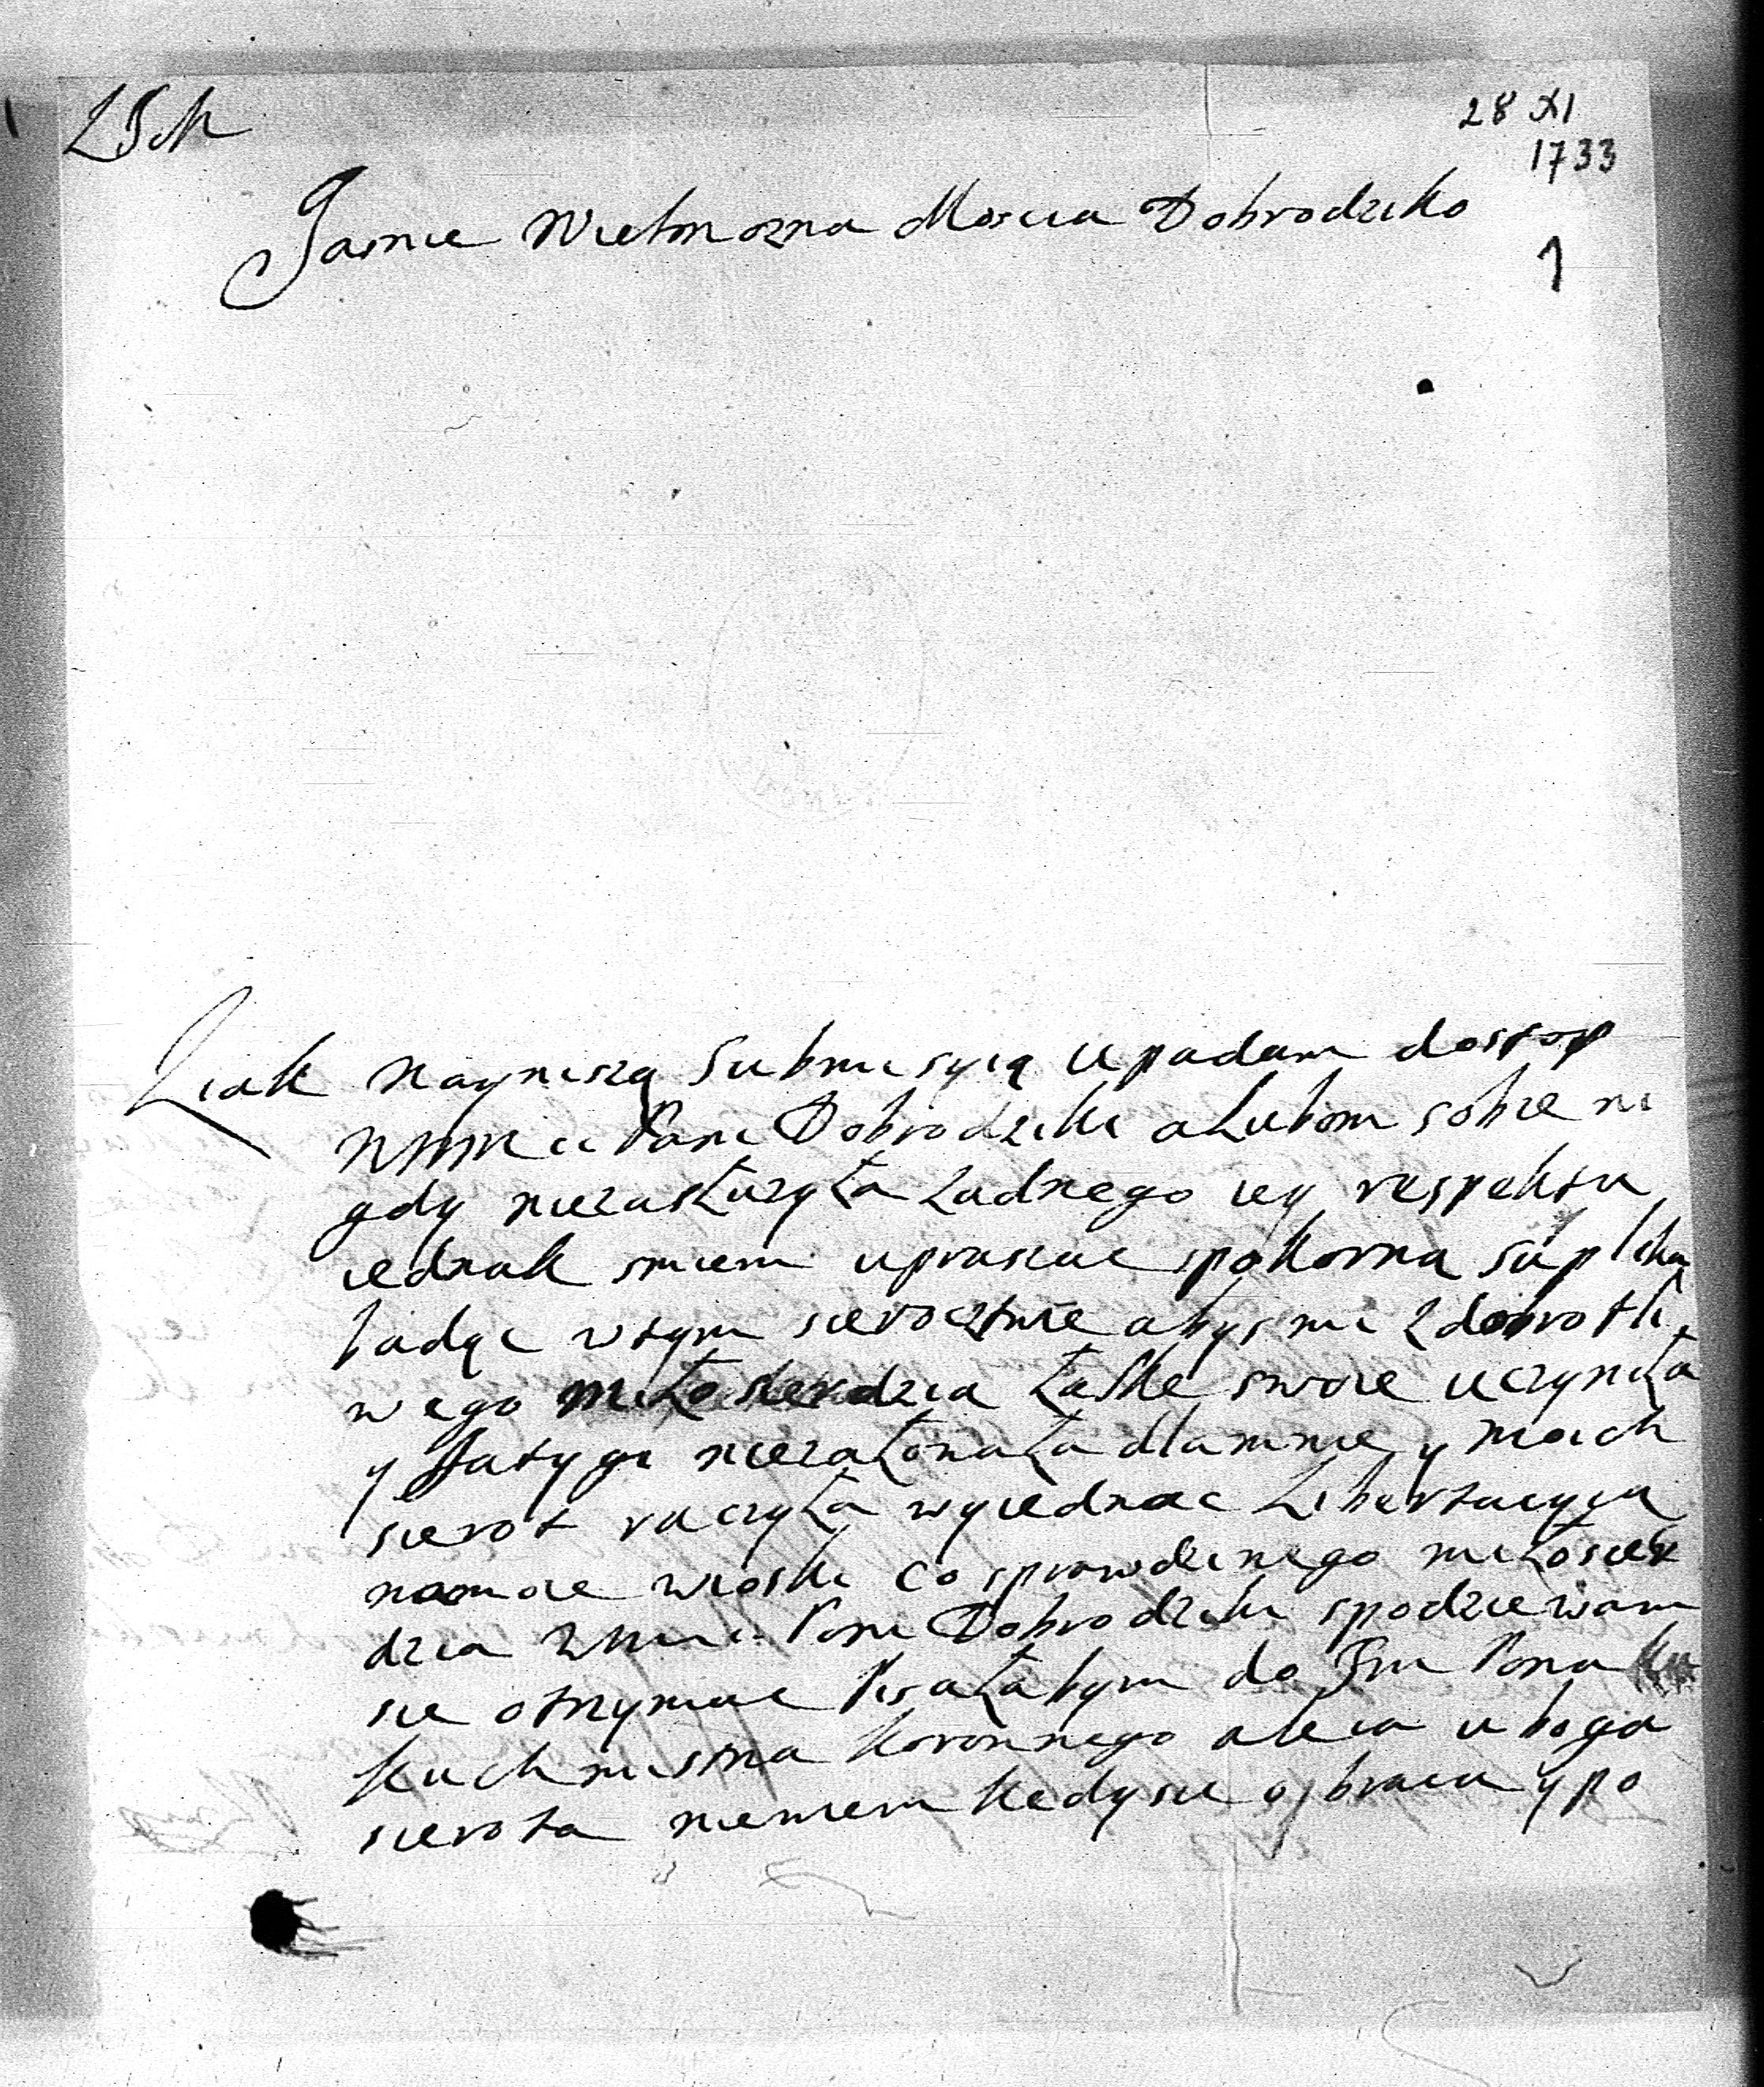 28 XI
1733
Jasnie Wielmozna Moscia Dobrodziko
1
Ziak Nayniszą Submisyią upadam dostop
Pani Dobrodziki aLubom sobie ni
gdy niezasłuzyła zadnego iey respektu
iednak smiem upraszac spokorna suplika
bądąc wtym sieroctwie abys mi zdobrotli
wego miłosierdzia łaske swoie uczyniła
y fatygi niezałowała dlamnie y moich
sierot raczyła wyiednac Libertacyia
namoie wioski co sprawdziwego miłosier
dzia Pani Dobrodziki spodziewam
sie otrzymac Pisałabym do Jm Pana
kuchmistrza koronnego ale ia uboga
sierota niewiem kedysie obraca y po